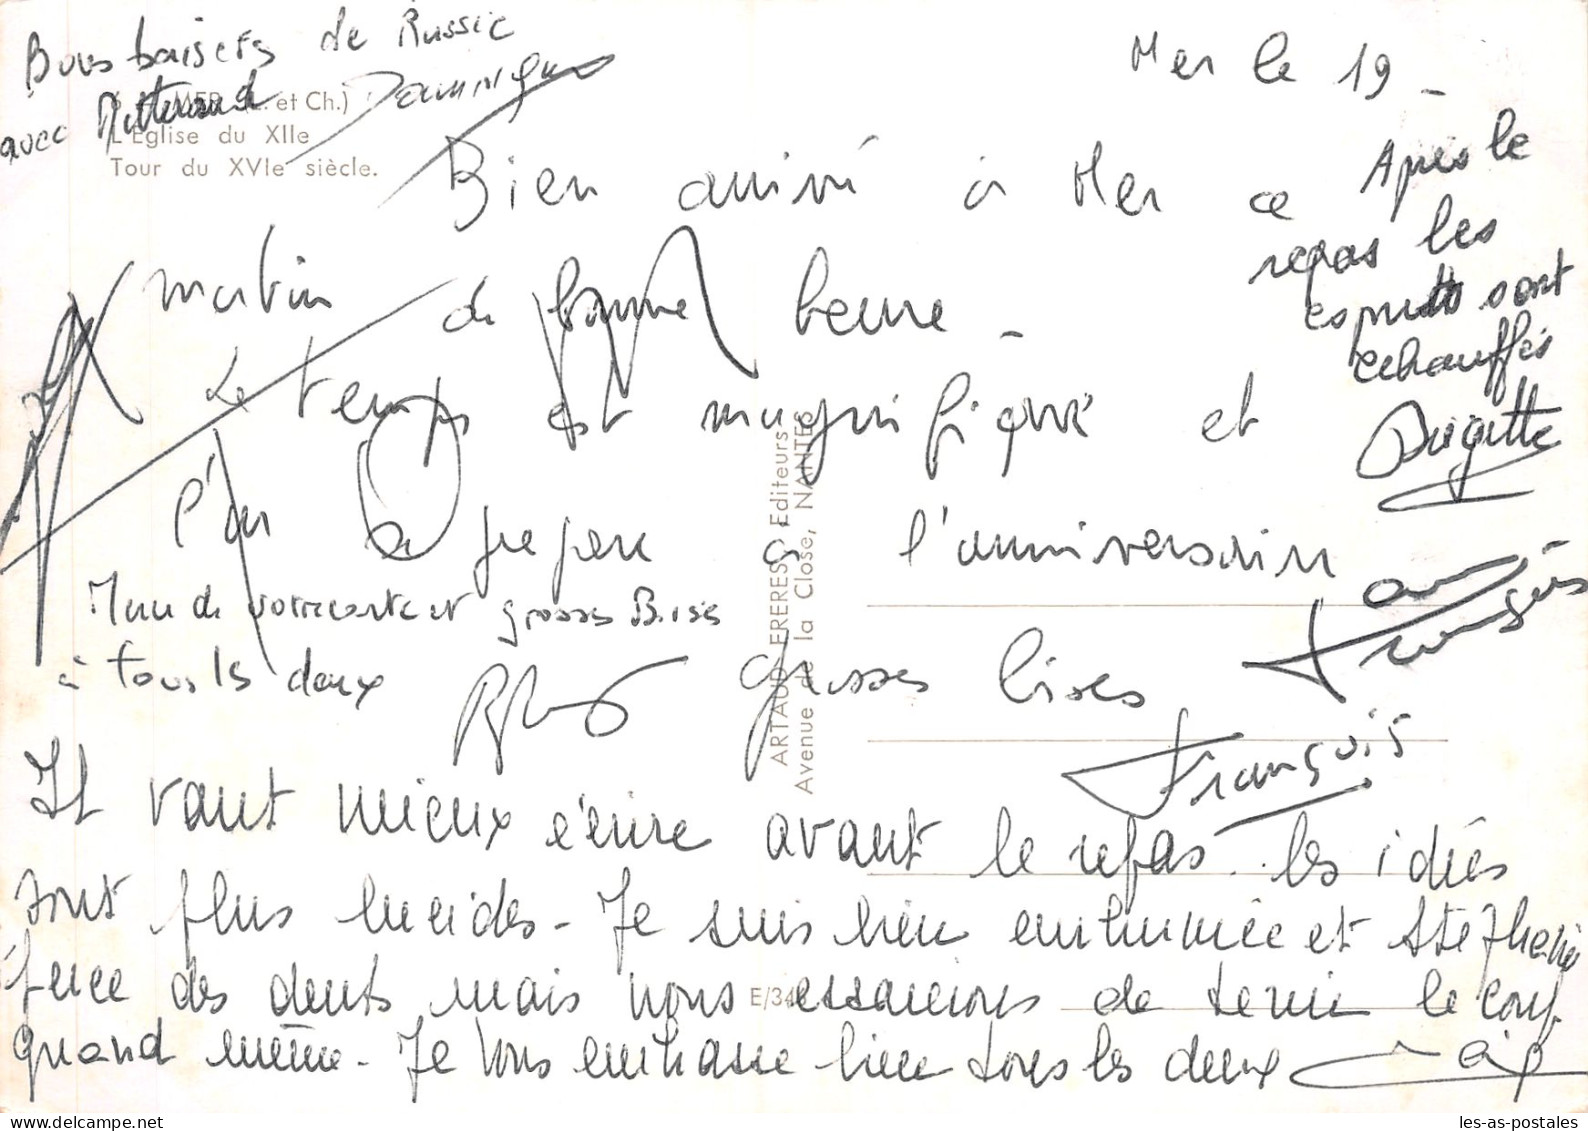 Bons baisers de Russie
avec Mitterand Dominique
MER (L. et Ch.)
L'Eglise du XIIe
Tour du XVIe siècle.
Mer le 19 -
Bien arrivé à Mer ce
matin de bonne heure -
Le temps est magnifique et
l'on se prepare a l'anniversaire
Grosses bises
François
Après le
repas les
esprits sont
echauffés
Brigitte
Merci de votre carte et grosses Bises
à tous ls deux
Il vaut mieux écrire avant le repas. les idées
sont plus lucides - Je suis bien enrhumée et Stéphanie
perce des dents mais nous essaierons de tenir le coup
quand même - Je vous embrasse bien tous les deux
ARTAUD FRERES, Editeurs
Avenue de la Close, NANTES
E/34
les-as-postales